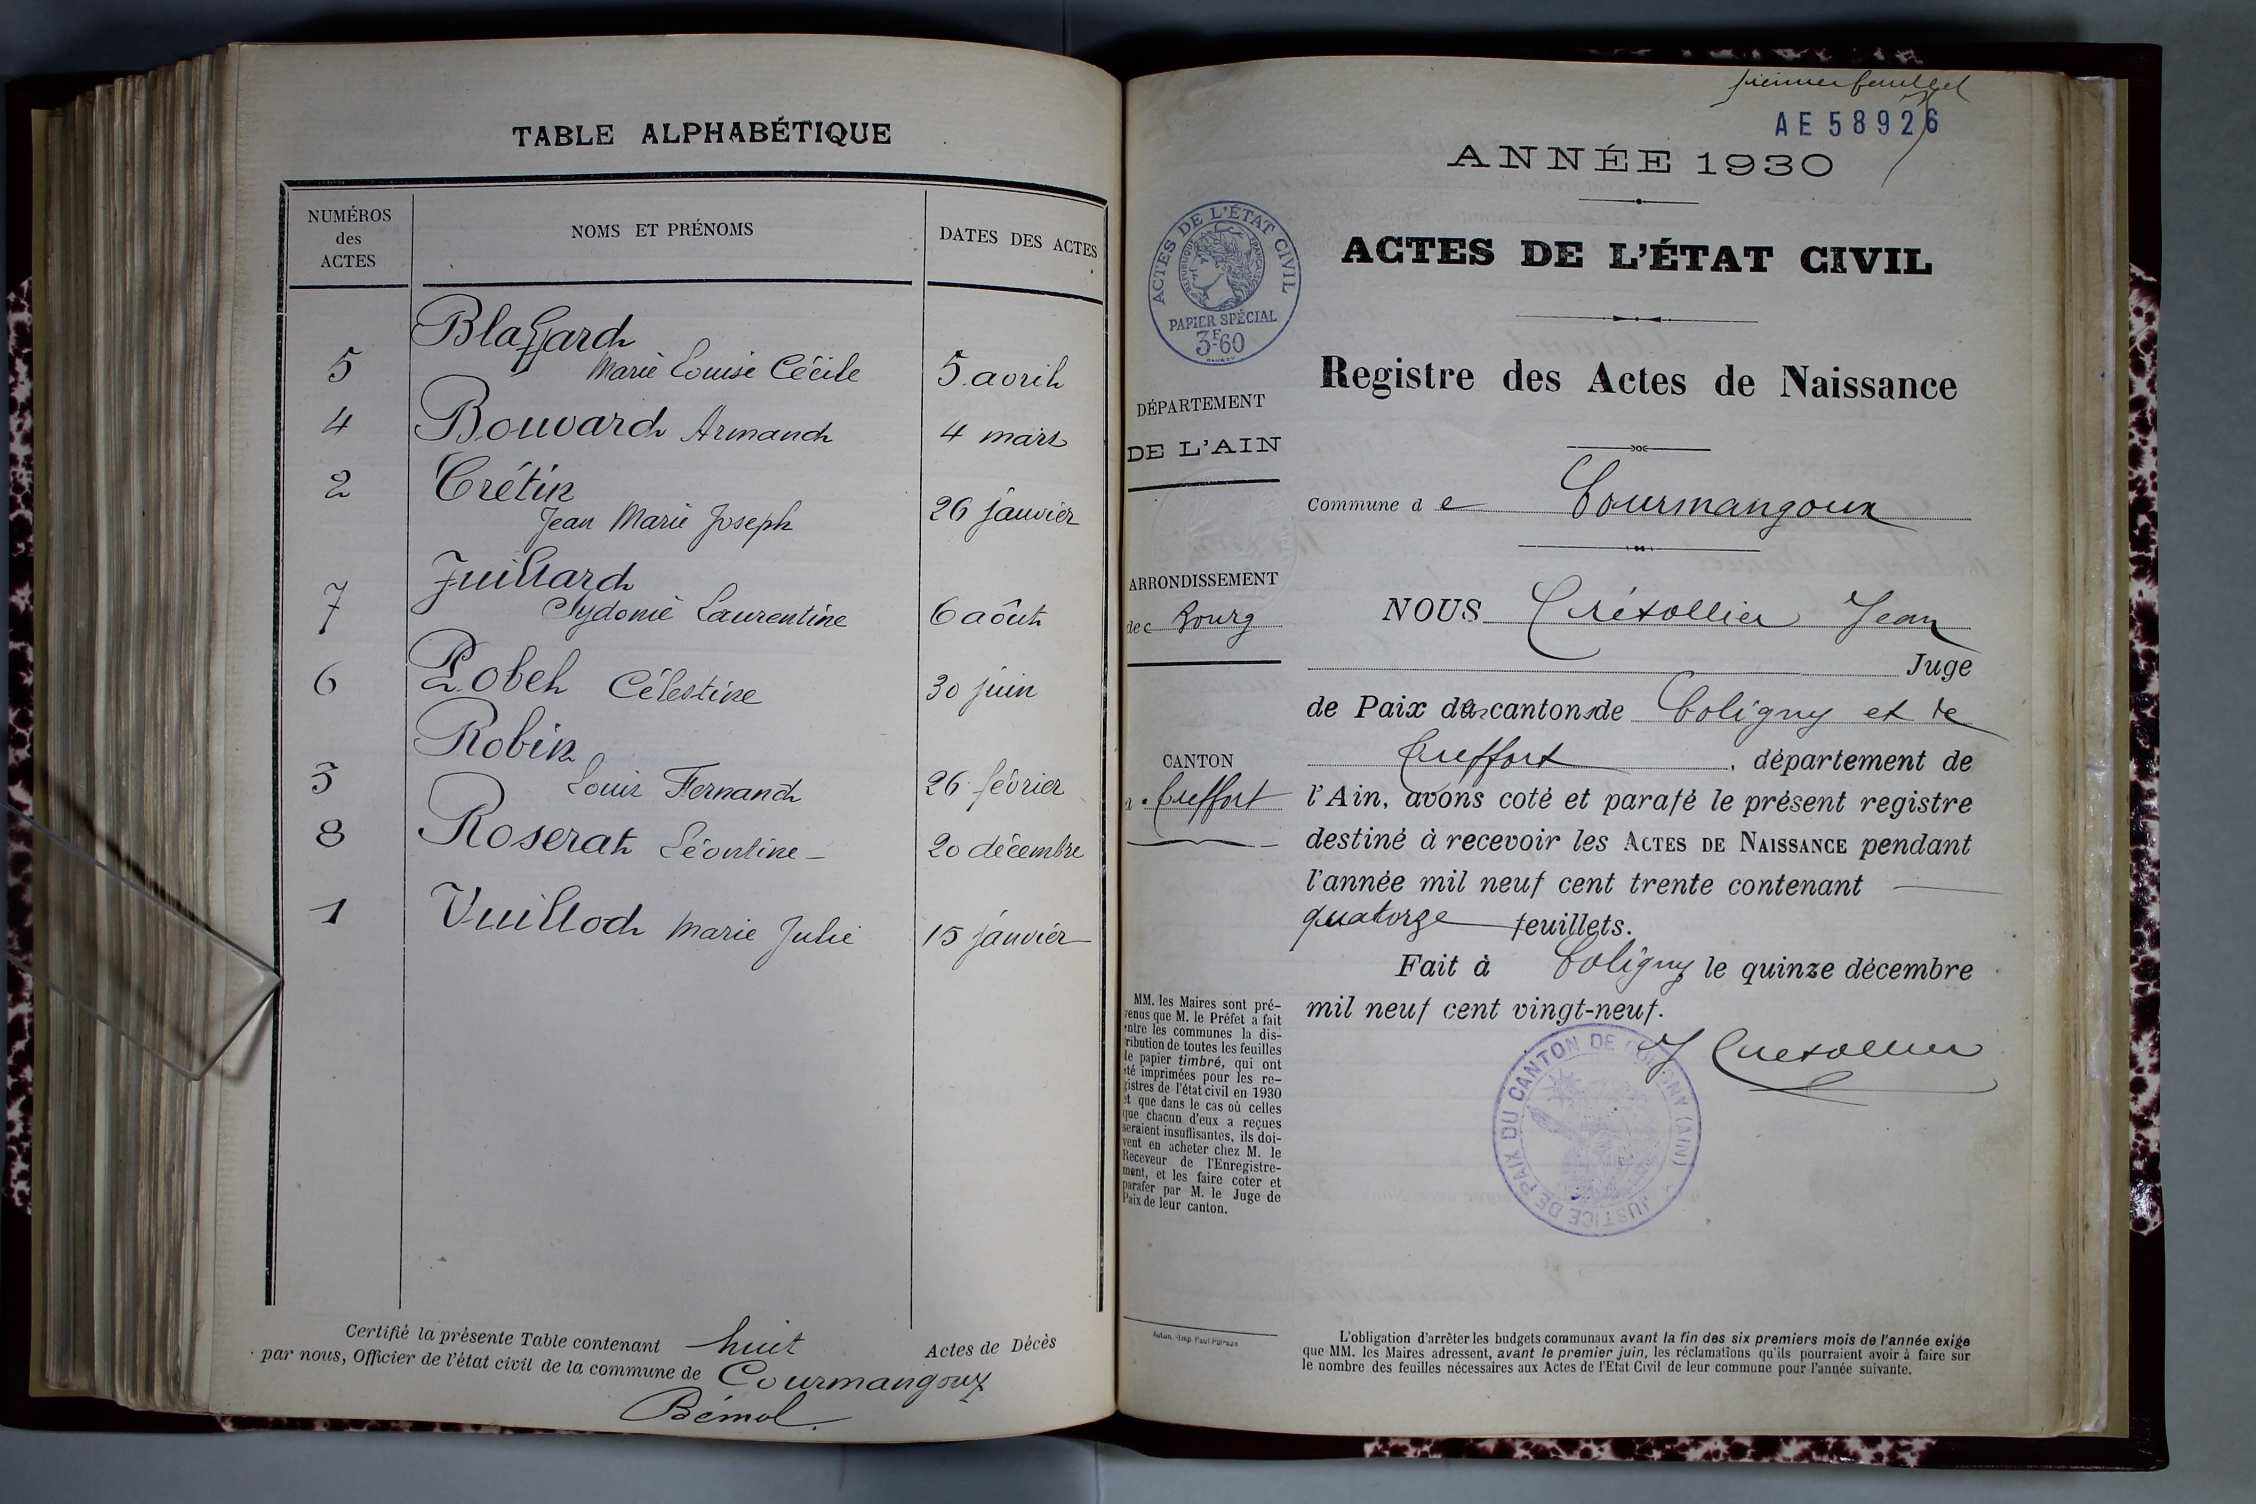 TABLE ALPHABÉTIQUE
NUMÉROS des ACTES
NOMS ET PRÉNOMS
DATES DES ACTES
Blaffard
5 Marie Louise Cécile 5 avril
4 Bouvard Armand 4 mars
2 Crétin
Jean Marie Joseph 26 janvier
Juillard
7 Sydonie Laurentine 6 août
6 Pobel Célestine 30 juin
Robin
3 Louis Fernand 26 février
8 Roserat Léontine 20 décembre
1 Vuillod Marie Julie 15 janvier
Certifié la présente Table contenant huit Actes de Décès
par nous, Officier de l'état civil de la commune de Courmangoux
Bémol
premier feuillet
AE 58926
ANNÉE 1930
ACTES DE L'ÉTAT CIVIL
RÉPUBLIQUE FRANÇAISE
PAPIER SPÉCIAL
3F60
ACTES DE L'ÉTAT CIVIL
Registre des Actes de Naissance
DÉPARTEMENT
DE L'AIN
Commune de Courmangoux
ARRONDISSEMENT
de Bourg
NOUS Crétollier Jean
Juge
de Paix des cantons de Coligny et de
CANTON
Treffort
Treffort, département de
l'Ain, avons coté et parafé le présent registre
destiné à recevoir les ACTES DE NAISSANCE pendant
l'année mil neuf cent trente contenant
quatorze feuillets.
Fait à Coligny le quinze décembre
mil neuf cent vingt-neuf.
J Cretollier
JUSTICE DE PAIX DU CANTON DE COLIGNY (AIN)
MM. les Maires sont pré-
venus que M. le Préfet a fait
entre les communes la dis-
tribution de toutes les feuilles
de papier timbré, qui ont
été imprimées pour les re-
gistres de l'état civil en 1930
et que dans le cas où celles
que chacun d'eux a reçues
seraient insuffisantes, ils doi-
vent en acheter chez M. le
Receveur de l'Enregistre-
ment, et les faire coter et
parafer par M. le Juge de
Paix de leur canton.
L'obligation d'arrêter les budgets communaux avant la fin des six premiers mois de l'année exige
que MM. les Maires adressent, avant le premier juin, les réclamations qu'ils pourraient avoir à faire sur
le nombre des feuilles nécessaires aux Actes de l'Etat Civil de leur commune pour l'année suivante.